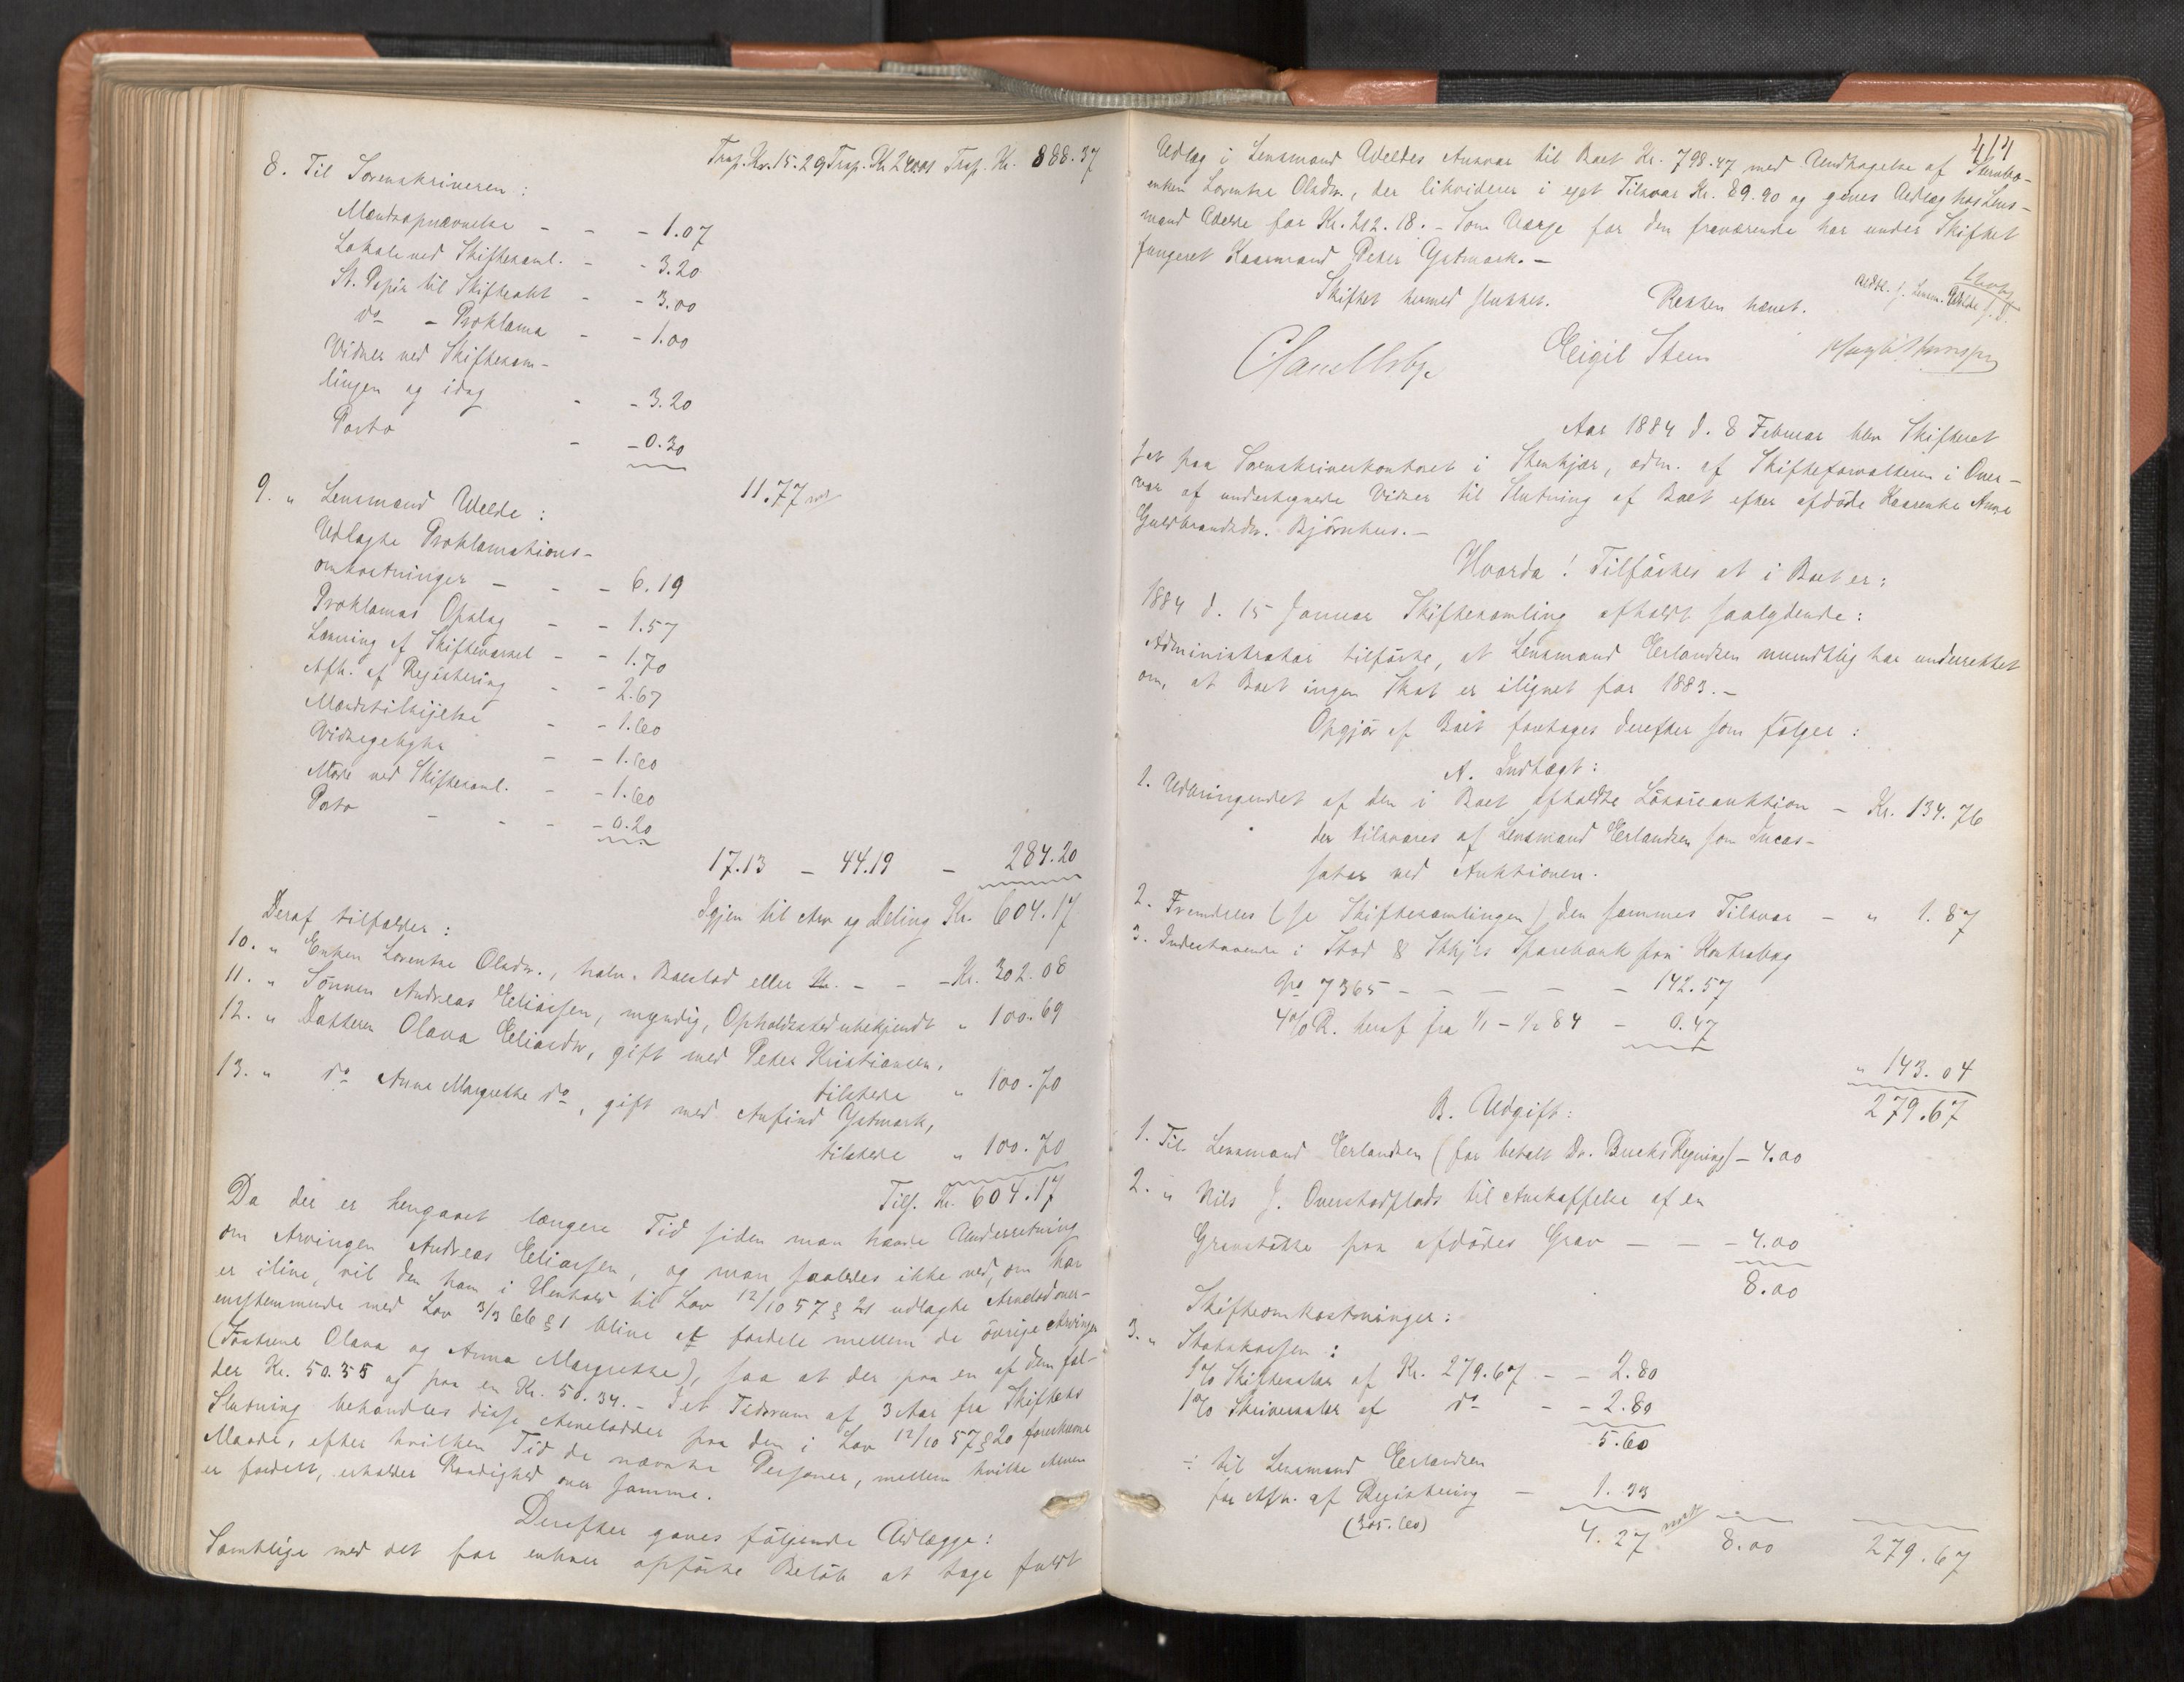 Trsp. Kr. 15.29 Trsp. Kr. 240.01 Trsp. Kr. 888.37
8. Til Sorenskriveren:
Mandsopnævnelse - - - 1.07
Lokale ved Skiftesaml. - - 3.20
St. Papir til Skifteakt - - 3.00
do - Proklama - - 1.00
Vidner ved Skiftesam-
lingen og idag - - 3.20
Porto - - 0.30
11.77
9. " Lensmand Welde:
Udlagte Proklamations-
omkostninger - - - 6.19
Proklamas Opslag - - 1.57
Læsning af Skiftevarsel - - 1.70
Afh. af Registering - - 2.67
Mandstilsigelse - - 1.60
Vidnegodtgj.
- - 1.60
Møde ved Skiftesaml. - - 1.60
Porto - - - - 0.20
17.13 - 44.19 - 284.20
Igjen til Arv og Deling Kr. 604.17
Deraf tilfalder:
10. " Enken Lorentse Olsdr., halv. Boeslod eller - - - Kr. 302.08
11. " Sønnen Andreas Eliassen, myndig, Opholdssted ubekjendt " 100.69
12. " Datteren Olava Eliasdr, gift med Peter Kristiansen,
tilstede " 100.70
13. " do Anne Margrethe do, gift med Anfind Ystmark,
tilstede " 100.70
Tils. Kr. 604.17
Da der er hengaaet længere Tid siden man havde Underretning
om Arvingen Andreas Eliassen, og man saaledes ikke ved, om han
er ilive, vil den ham i Henhold til Lov 12/10 57 § 21 udlagte Arvelod over-
ensstemmende med Lov 3/3 66 § 1 blive at fordele mellem de øvrige Arvinger
(Søstrene Olava og Anna Margrethe), saa at der paa en af dem fal-
der Kr. 50.35 og paa en Kr. 50.34. - I et Tidsrum af 3 Aar fra Skiftets
Slutning behandles disse Arvelodder paa den i Lov 12/10 57 § 20 foreskrevne
Maade, efter hvilken Tid de nævnte Personer, mellem hvilke Arven
er fordelt, erholder Raadighed over samme.
Derefter gaves følgende Udlægge:
Samtlige med det for enhver opførte Beløb at tage fuldt
414
Udlæg i Lensmand Weldes Ansvar til Boet Kr. 798.47 med Undtagelse af Stervbo-
enken Lorentse Olsdr., der likviderer i eget Tilsvar Kr. 89.90 og gives Udlæg hos Lens-
mand Welde for Kr. 212.18. - Som Værge for den fraværende har under Skiftet
fungeret Kaarmand Peter Ystmark. -
Skiftet hermed sluttet. Retten hævet.
Eigil Steen
Aar 1884 d. 8 Februar blev Skifteret
sat paa Sorenskriverkontoret i Stenkjær, adm. af Skifteforvalteren i Over-
vær af undertegnede Vidner til Slutning af Boet efter afdøde Kaarenke Anne
Guldbrandsdr. Bjørnhus. -
Hvorda! Tilførtes at i Boet er:
1884 d. 15 Januar Skiftesamling afholdt saalydende:
Administrator tilførte, at Lensmand Erlandsen mundtlig har underrettet
om, at Boet ingen Skat er ilignet for 1883. -
Opgjør af Boet foretages derefter som følger:
A. Indtægt:
1. Udbringendet af den i Boet afholdte Løsøreauktion - Kr. 134.76
der tilsvares af Lensmand Erlandsen som Incas-
sator ved Auktionen.
2. Fremdeles (se Skiftesamlingen) den sammes Tilsvar - " 1.87
3. Indestaaende i Stod & Stkjrs Sparebank paa Kontrabog
No 7365 - - - - - 142.57
4% R. heraf fra 1/1 - 1/2 84 - 0.47
" 143.04
279.67
B. Udgift:
1. Til Lensmand Erlandsen (for betalt Dr. Bucks Regning) - 4.00
2. " Nils J. Overstadplads til Anskaffelse af en
Gravstøtte paa afdødes Grav - - - 4.00
8.00
Skifteomkostninger:
3. " Statskassen:
1% Skiftesalær af Kr. 279.67 - - 2.80
1% Skriversalær af do - - 2.80
5.60
÷ til Lensmand Erlandsen
for Afh. af Registering - 1.33
(305.60)
4.27 8.00 279.67